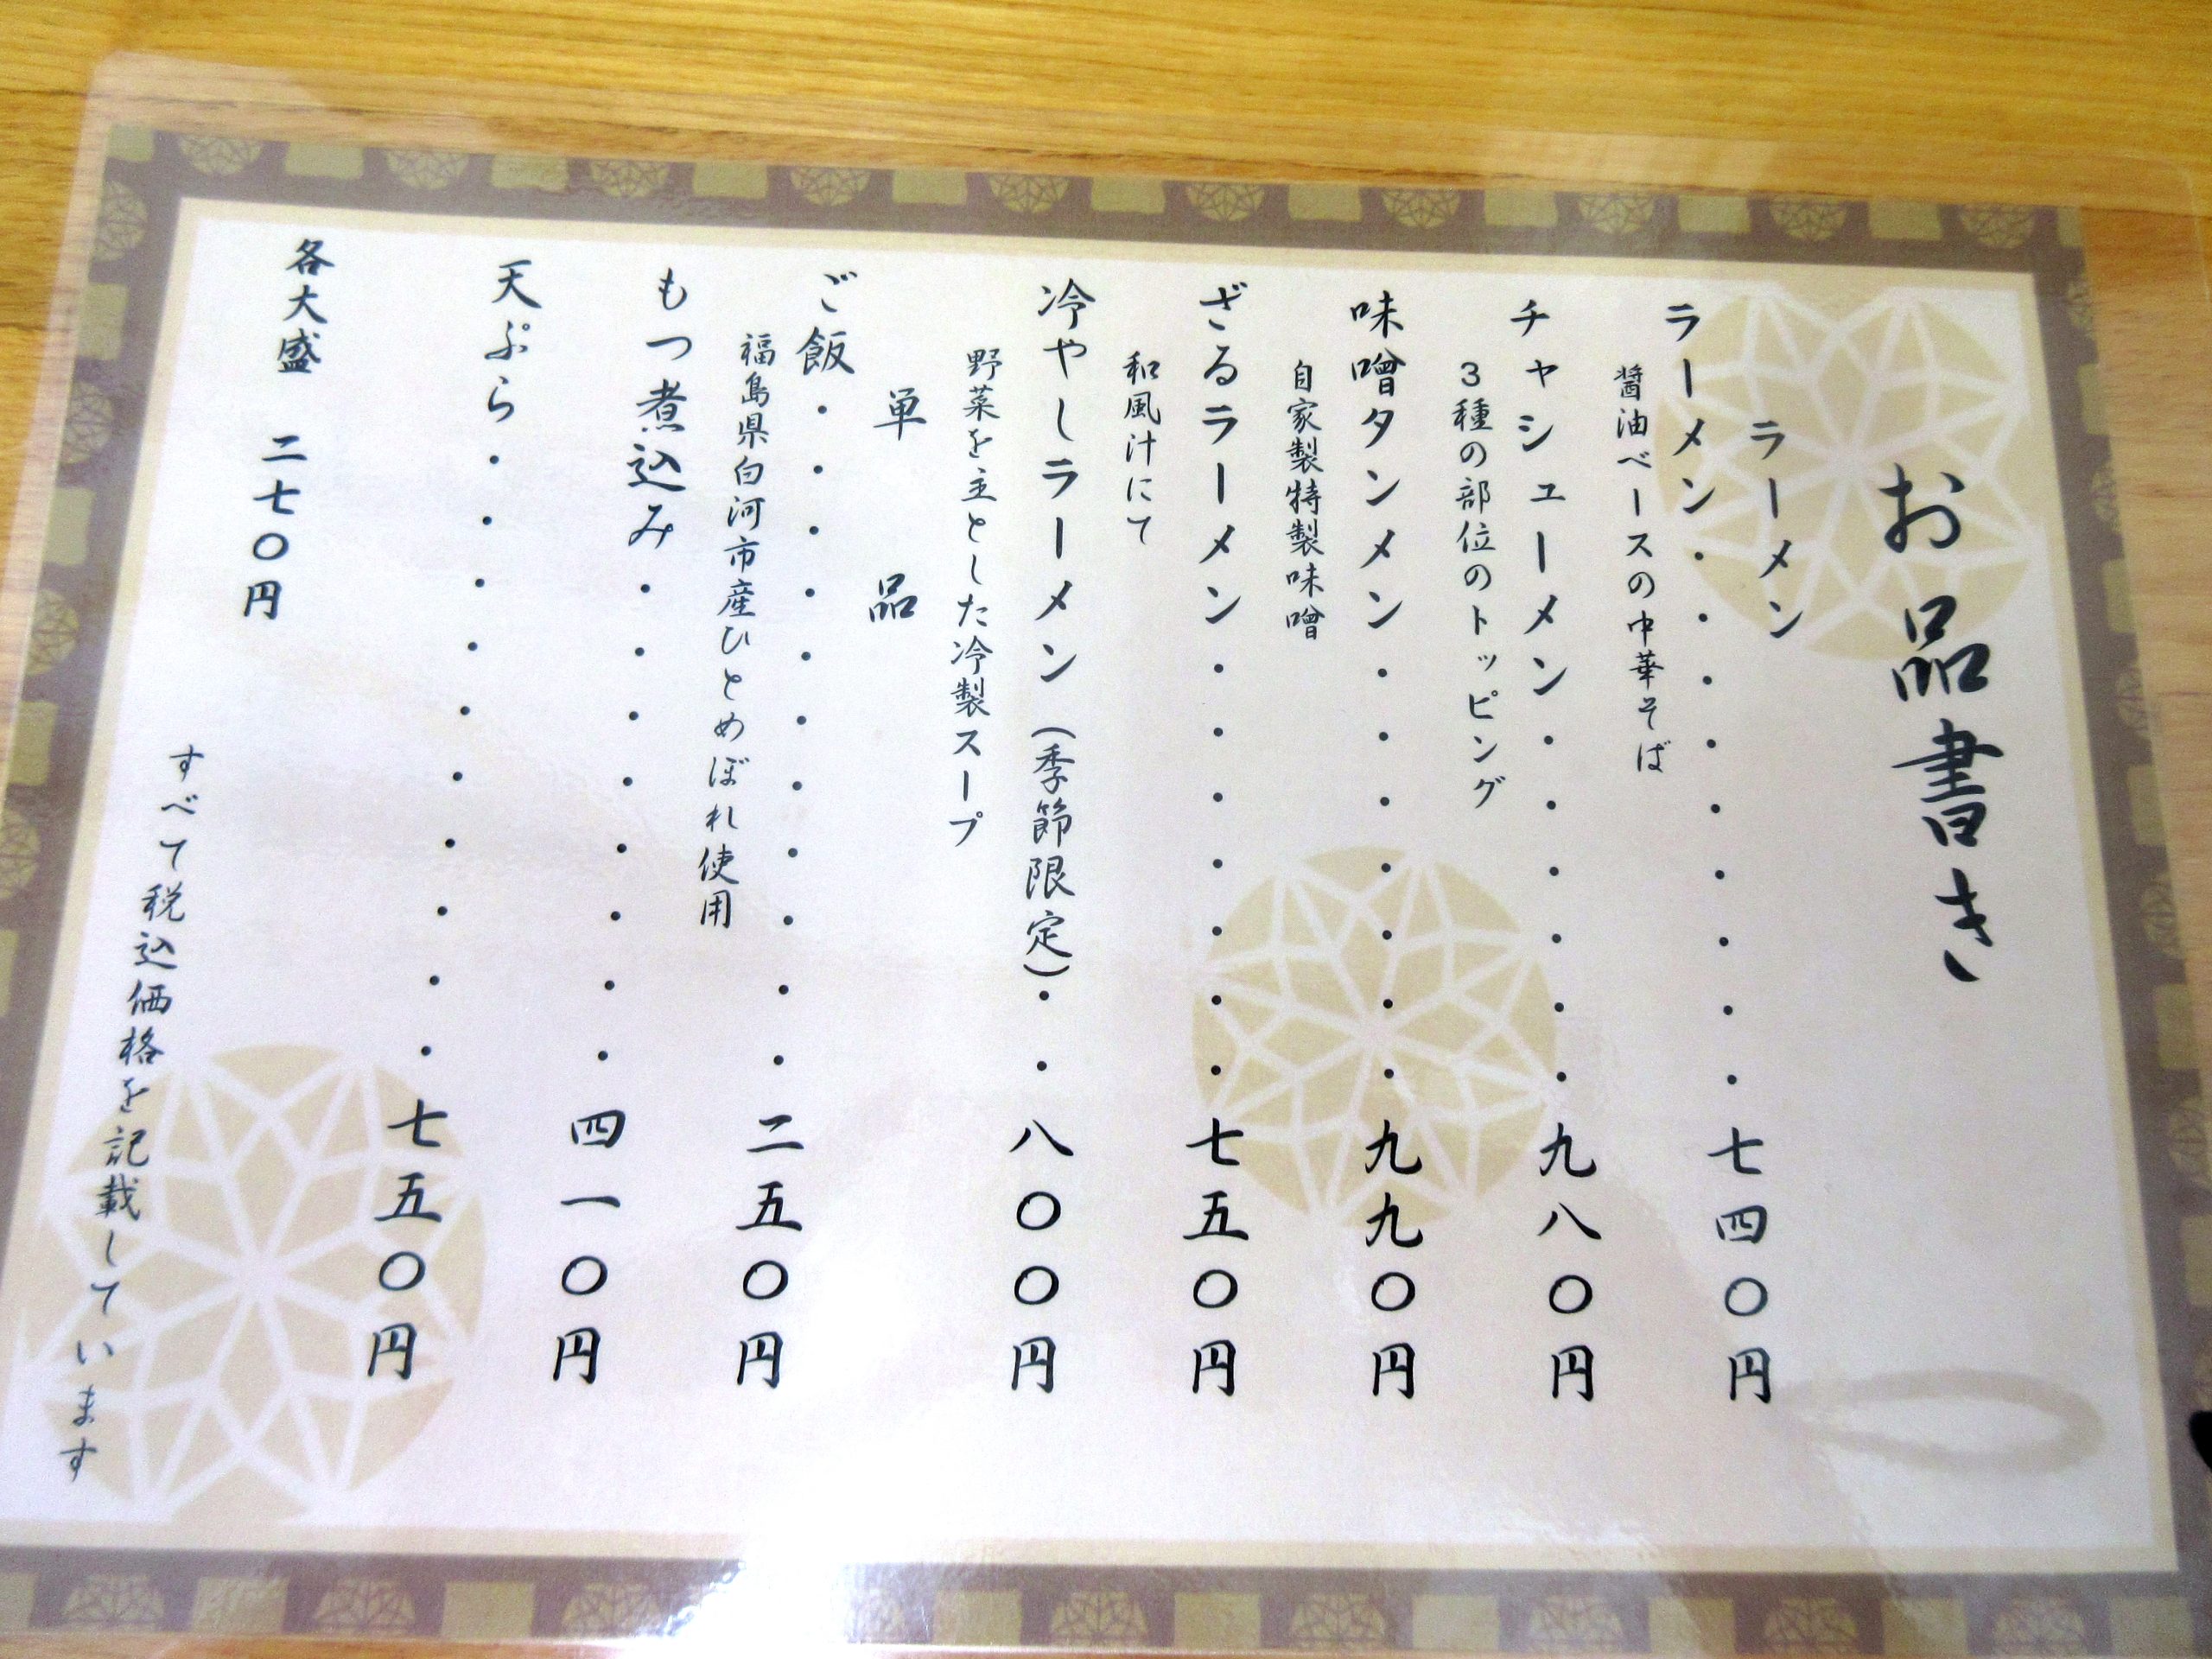 お品書き
ラーメン
ラーメン・・・・・・・・・七四〇円
醤油ベースの中華そば
チャシューメン・・・・・・九八〇円
3種の部位のトッピング
味噌タンメン・・・・・・・九九〇円
自家製特製味噌
ざるラーメン・・・・・・・七五〇円
和風汁にて
冷やしラーメン（季節限定）・・八〇〇円
野菜を主とした冷製スープ
単品
ご飯・・・・・・・・・・・二五〇円
福島県白河市産ひとめぼれ使用
もつ煮込み・・・・・・・・四一〇円
天ぷら・・・・・・・・・・七五〇円
各大盛　二七〇円
すべて税込価格を記載しています